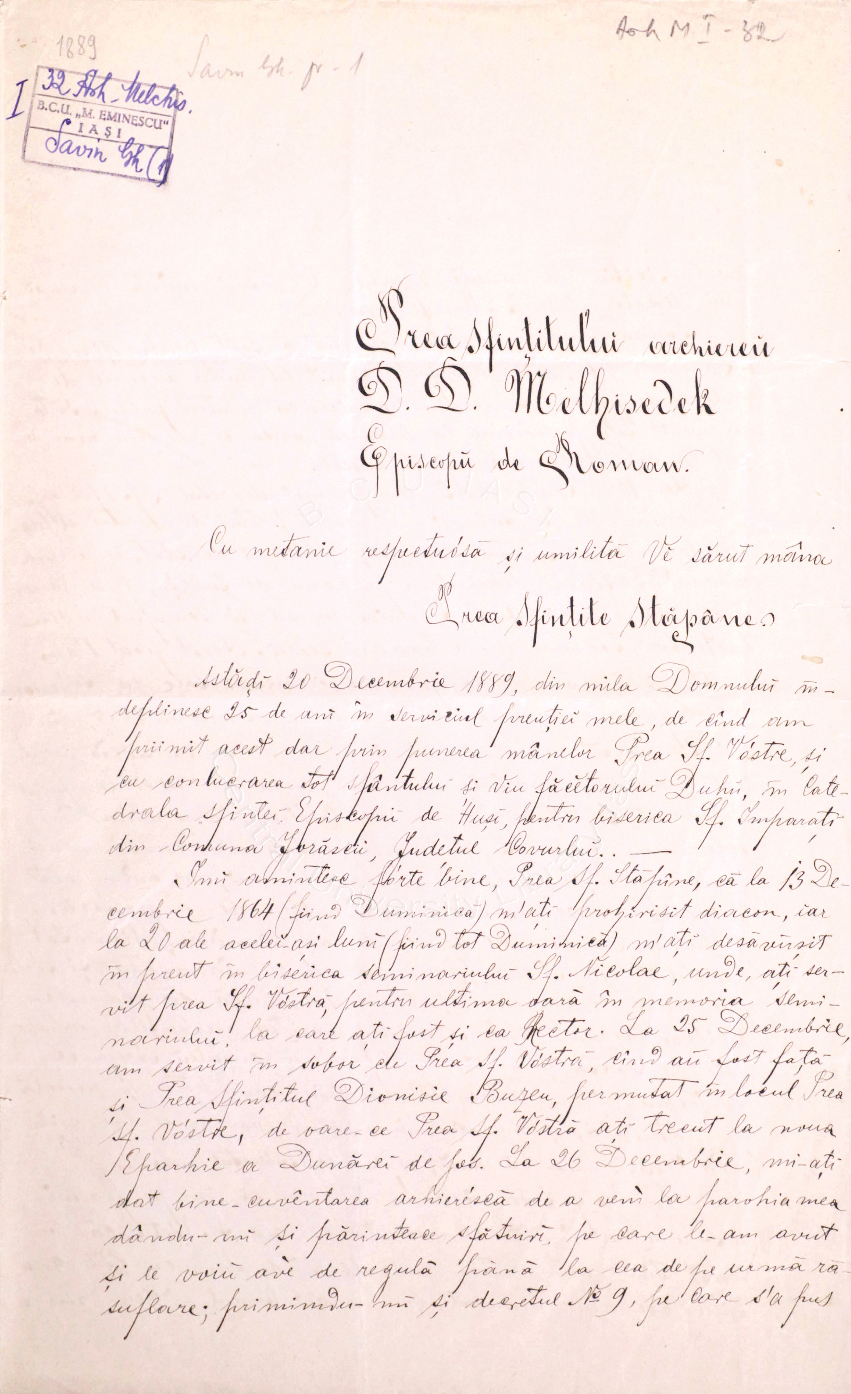 Arh M I - 32
1889
Savin Gh. pr - 1
I
32 Arh. Melchis.
B.C.U. „M. EMINESCU"
IAȘI
Savin Gh (1)
Prea Sfințitului archiereŭ
D. D. Melhisedek
Episcopŭ de Roman.
Cu metanie respectuósă și umilită Vĕ sărut mâna
Prea Sfințite Stăpâne
Astăḑi 20 Decembrie 1889, din mila Domnului în-
deplinesc 25 de ani în serviciul preuției mele, de cînd am
priimit acest dar prin punerea mânelor Prea Sf. Vóstre, și
cu conlucrarea tot sfântului și viu făcĕtorului Duhŭ, în Cate-
drala sfintei Episcopii de Huși, pentru biserica Sf. Imparați
din Comuna Jorăscii, Judetul Covurlui. —
Imi amintesc fórte bine, Prea Sf. Stapîne, că la 13 De-
cembrie 1864 (fiind Duminică) m'ați prohirisit diacon, iar
la 20 ale acelei-ași luni (fiind tot Duminică) m'ați desăvîrsit
în preut în biserica seminariului Sf. Nicolae, unde, ați ser-
vit prea Sf. Vóstră, pentru ultima óară în memoria semi-
nariului, la care ați fost și ca Rector. La 25 Decembrie,
am servit în sobor cu Prea Sf. Vóstră, cînd aŭ fost față
și Prea Sfințitul Dionisie Buzeu, permutat în locul Prea
Sf. Vóstre, de oare-ce Prea Sf. Vóstră ați trecut la noua
Eparhie a Dunărei de jos. La 26 Decembrie, mi-ați
dat bine-cuvêntarea arhieréscă de a veni la parohia mea
dându-mi și părintesce sfătuiri, pe care le-am avut
și le voiŭ avè de regulă până la cea de pe urmă ră-
suflare; primindu-mi și decretul No 9, pe care s'a pus